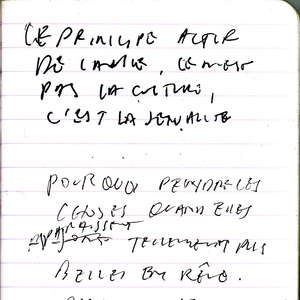 LE PRINCIPE ACTIF
DE L'AMOUR, CE N'EST
PAS LA CULTURE,
C'EST LA SEXUALITE
POURQUOI PEINDRE LES
CHOSES QUAND ELLES
APPARAISSENT
TELLEMENT PLUS
BELLES EN RÊVE.